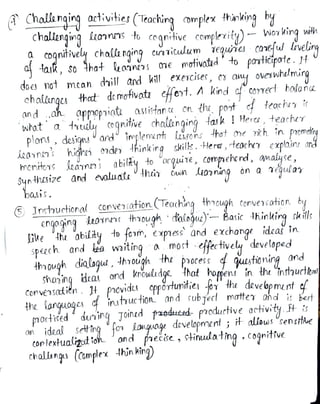 ④ Challenging activities (Teaching complex thinking by
challenging learners to cognitive complexity) - Working with
a cognitively challenging curriculum requires careful leveling
of task, so that learners are motivated to participate. It
does not mean drill and kill exercises, or any overwhelming
challenges that demotivate effort. A kind of correct balance
and an appropriate assistance on the part of teacher is
what a truly cognitive challenging task! Here, teacher
plans, designs and implements lessons that are rich in promoting
learner's higher order thinking skills. Here, teacher explains and
monitors learner's ability to acquire, comprehend, analyse,
Synthesize and evaluate their own learning on a regular
basis.
⑤ Instructional conversation (Teaching through conversation by
engaging learners through dialogue) - Basic thinking skills
like the ability to form, express and exchange ideas in
speech and writing a most effectively developed
through dialogue, through the process of questioning and
sharing ideas and knowledge that happens in the instruction
conversation. It provides opportunities for the development of
the languages of instruction and subject matter and is best
practised during joined productive activity. It is
an ideal setting for language development; it allows sensitive
contextualization and precise, stimulating, cognitive
challenges (Complex thinking)